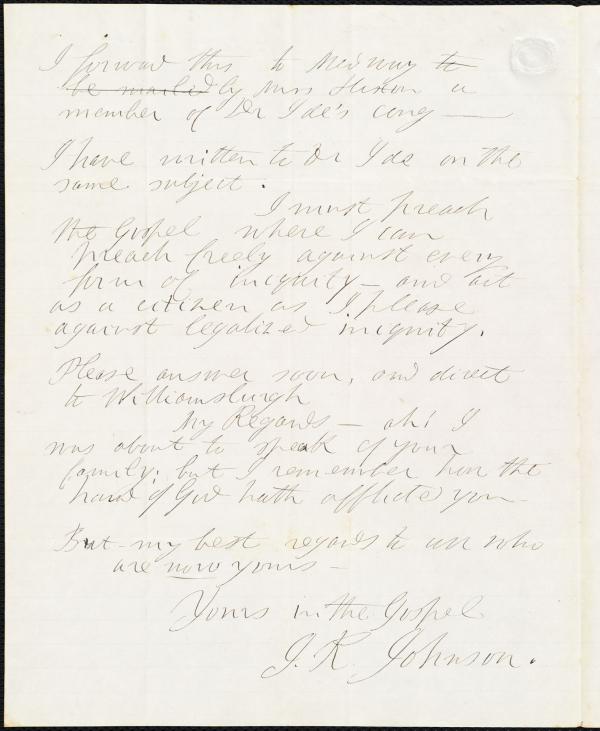 I forward this to Medway to
be mailed by Miss
a
member of Dr Ide's cong —
I have written to Dr Ide on the
same subject.
I must preach
the Gospel where I can
preach freely against every
form of iniquity — and act
as a citizen as I please
against legalized iniquity.
Please answer soon, and direct
to Williamsburgh
My Regards — ah! I
was about to speak of your
family; but I remember how the
hand of God hath afflicted you —
But my best regards to all who
are now yours —
Yours in the Gospel
J. R. Johnson.